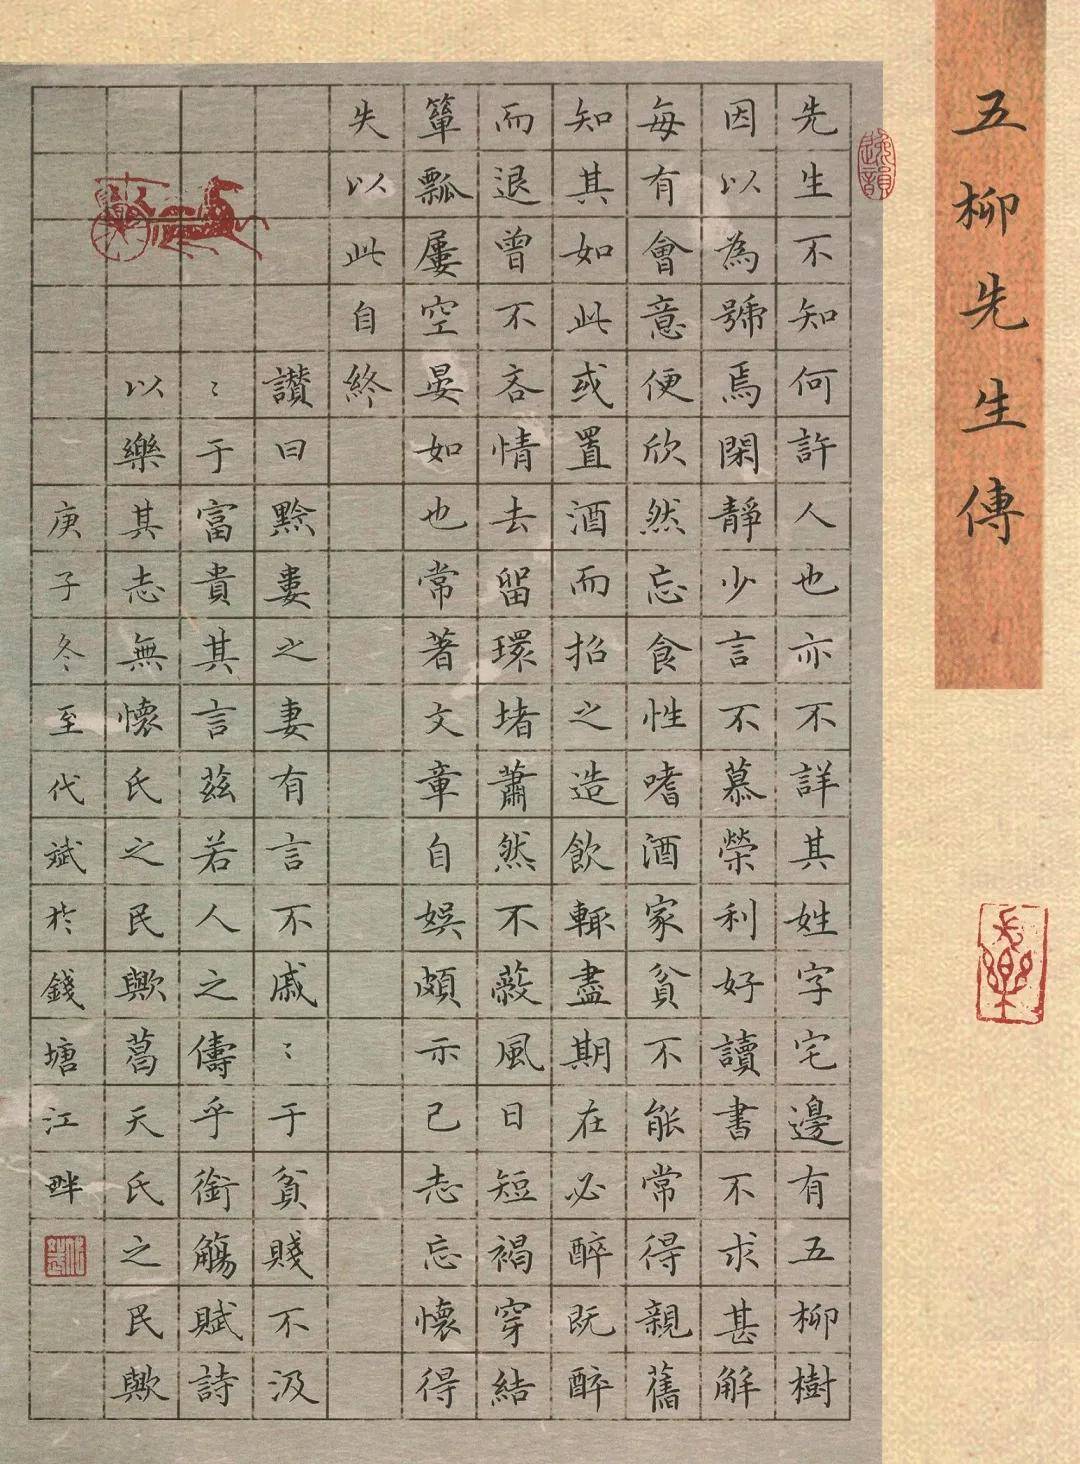 五柳先生傳
逸韻
先生不知何許人也亦不詳其姓字宅邊有五柳樹
因以為號焉閑靜少言不慕榮利好讀書不求甚解
每有會意便欣然忘食性嗜酒家貧不能常得親舊
知其如此或置酒而招之造飲輒盡期在必醉既醉
而退曾不吝情去留環堵蕭然不蔽風日短褐穿結
簞瓢屢空晏如也常著文章自娛頗示己志忘懷得
失以此自終
讚曰黔婁之妻有言不戚〻于貧賤不汲
〻于富貴其言茲若人之儔乎銜觴賦詩
以樂其志無懷氏之民歟葛天氏之民歟
庚子冬至代斌於錢塘江畔